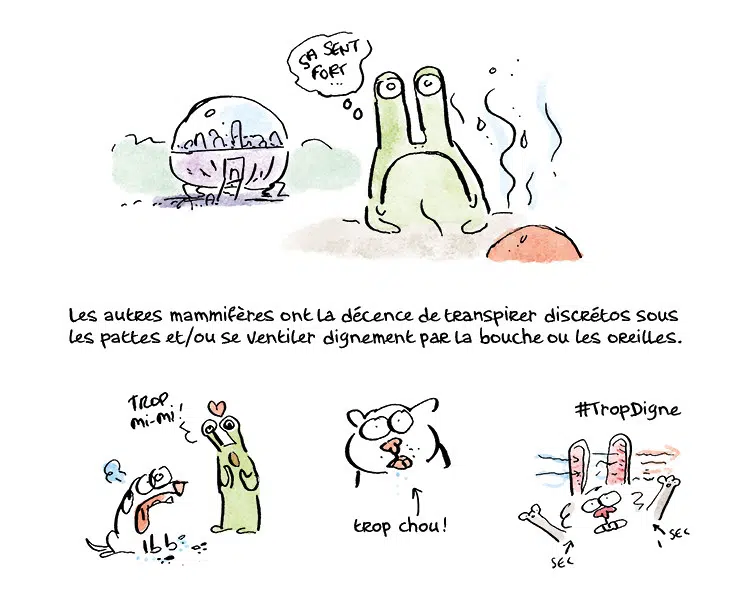 SA SENT
FORT
...
Les autres mammifères ont la décence de transpirer discrétos sous
les pattes et/ou se ventiler dignement par la bouche ou les oreilles.
TROP
mi-mi!
trop chou!
#TropDigne
SEC
SEC